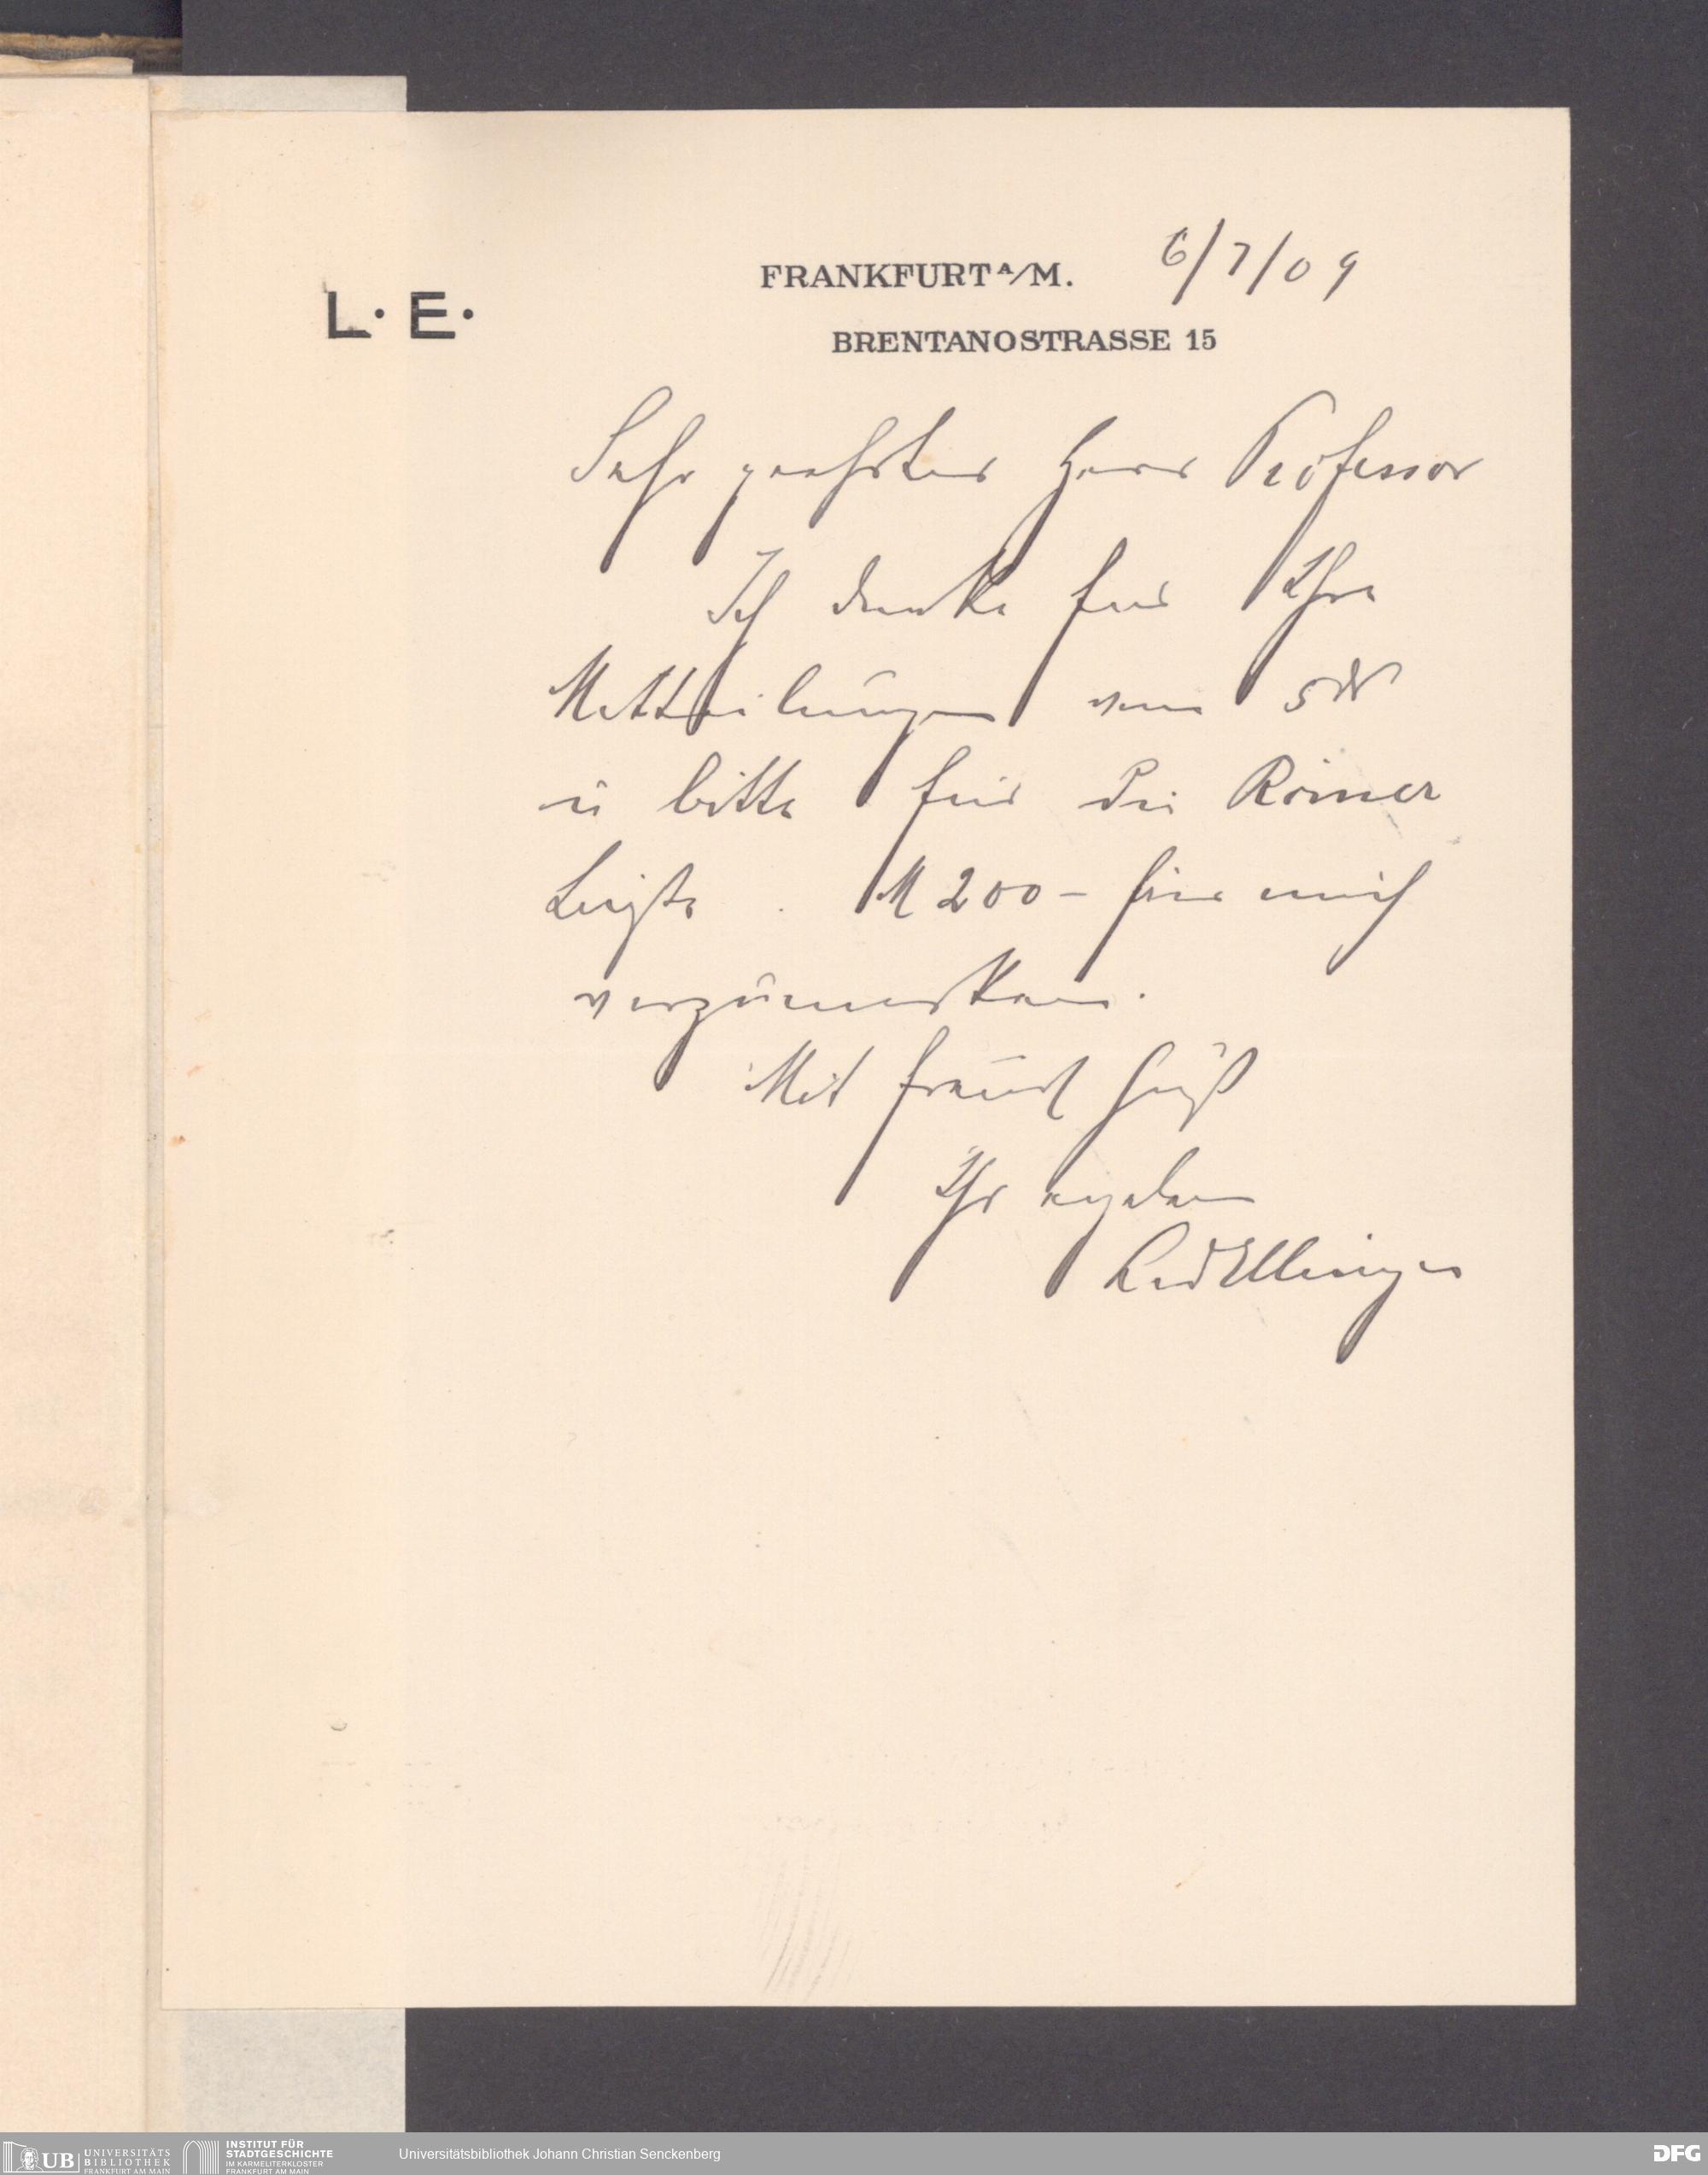 FRANKFURT A/M. 6/7/09
L. E.
BRENTANOSTRASSE 15
Sehr geehrter Herr Professor
Ich danke für Ihre
Mittheilungen vom 5ten
u bitte für die Römer
M 200 – für mich
vorzumerken.
Mit freundl Gruß
Ihr ergeben
Leo Ellinger
UB UNIVERSITÄTS
BIBLIOTHEK
FRANKFURT AM MAIN
INSTITUT FÜR
STADTGESCHICHTE
IM KARMELITERKLOSTER
FRANKFURT AM MAIN
Universitätsbibliothek Johann Christian Senckenberg
DFG